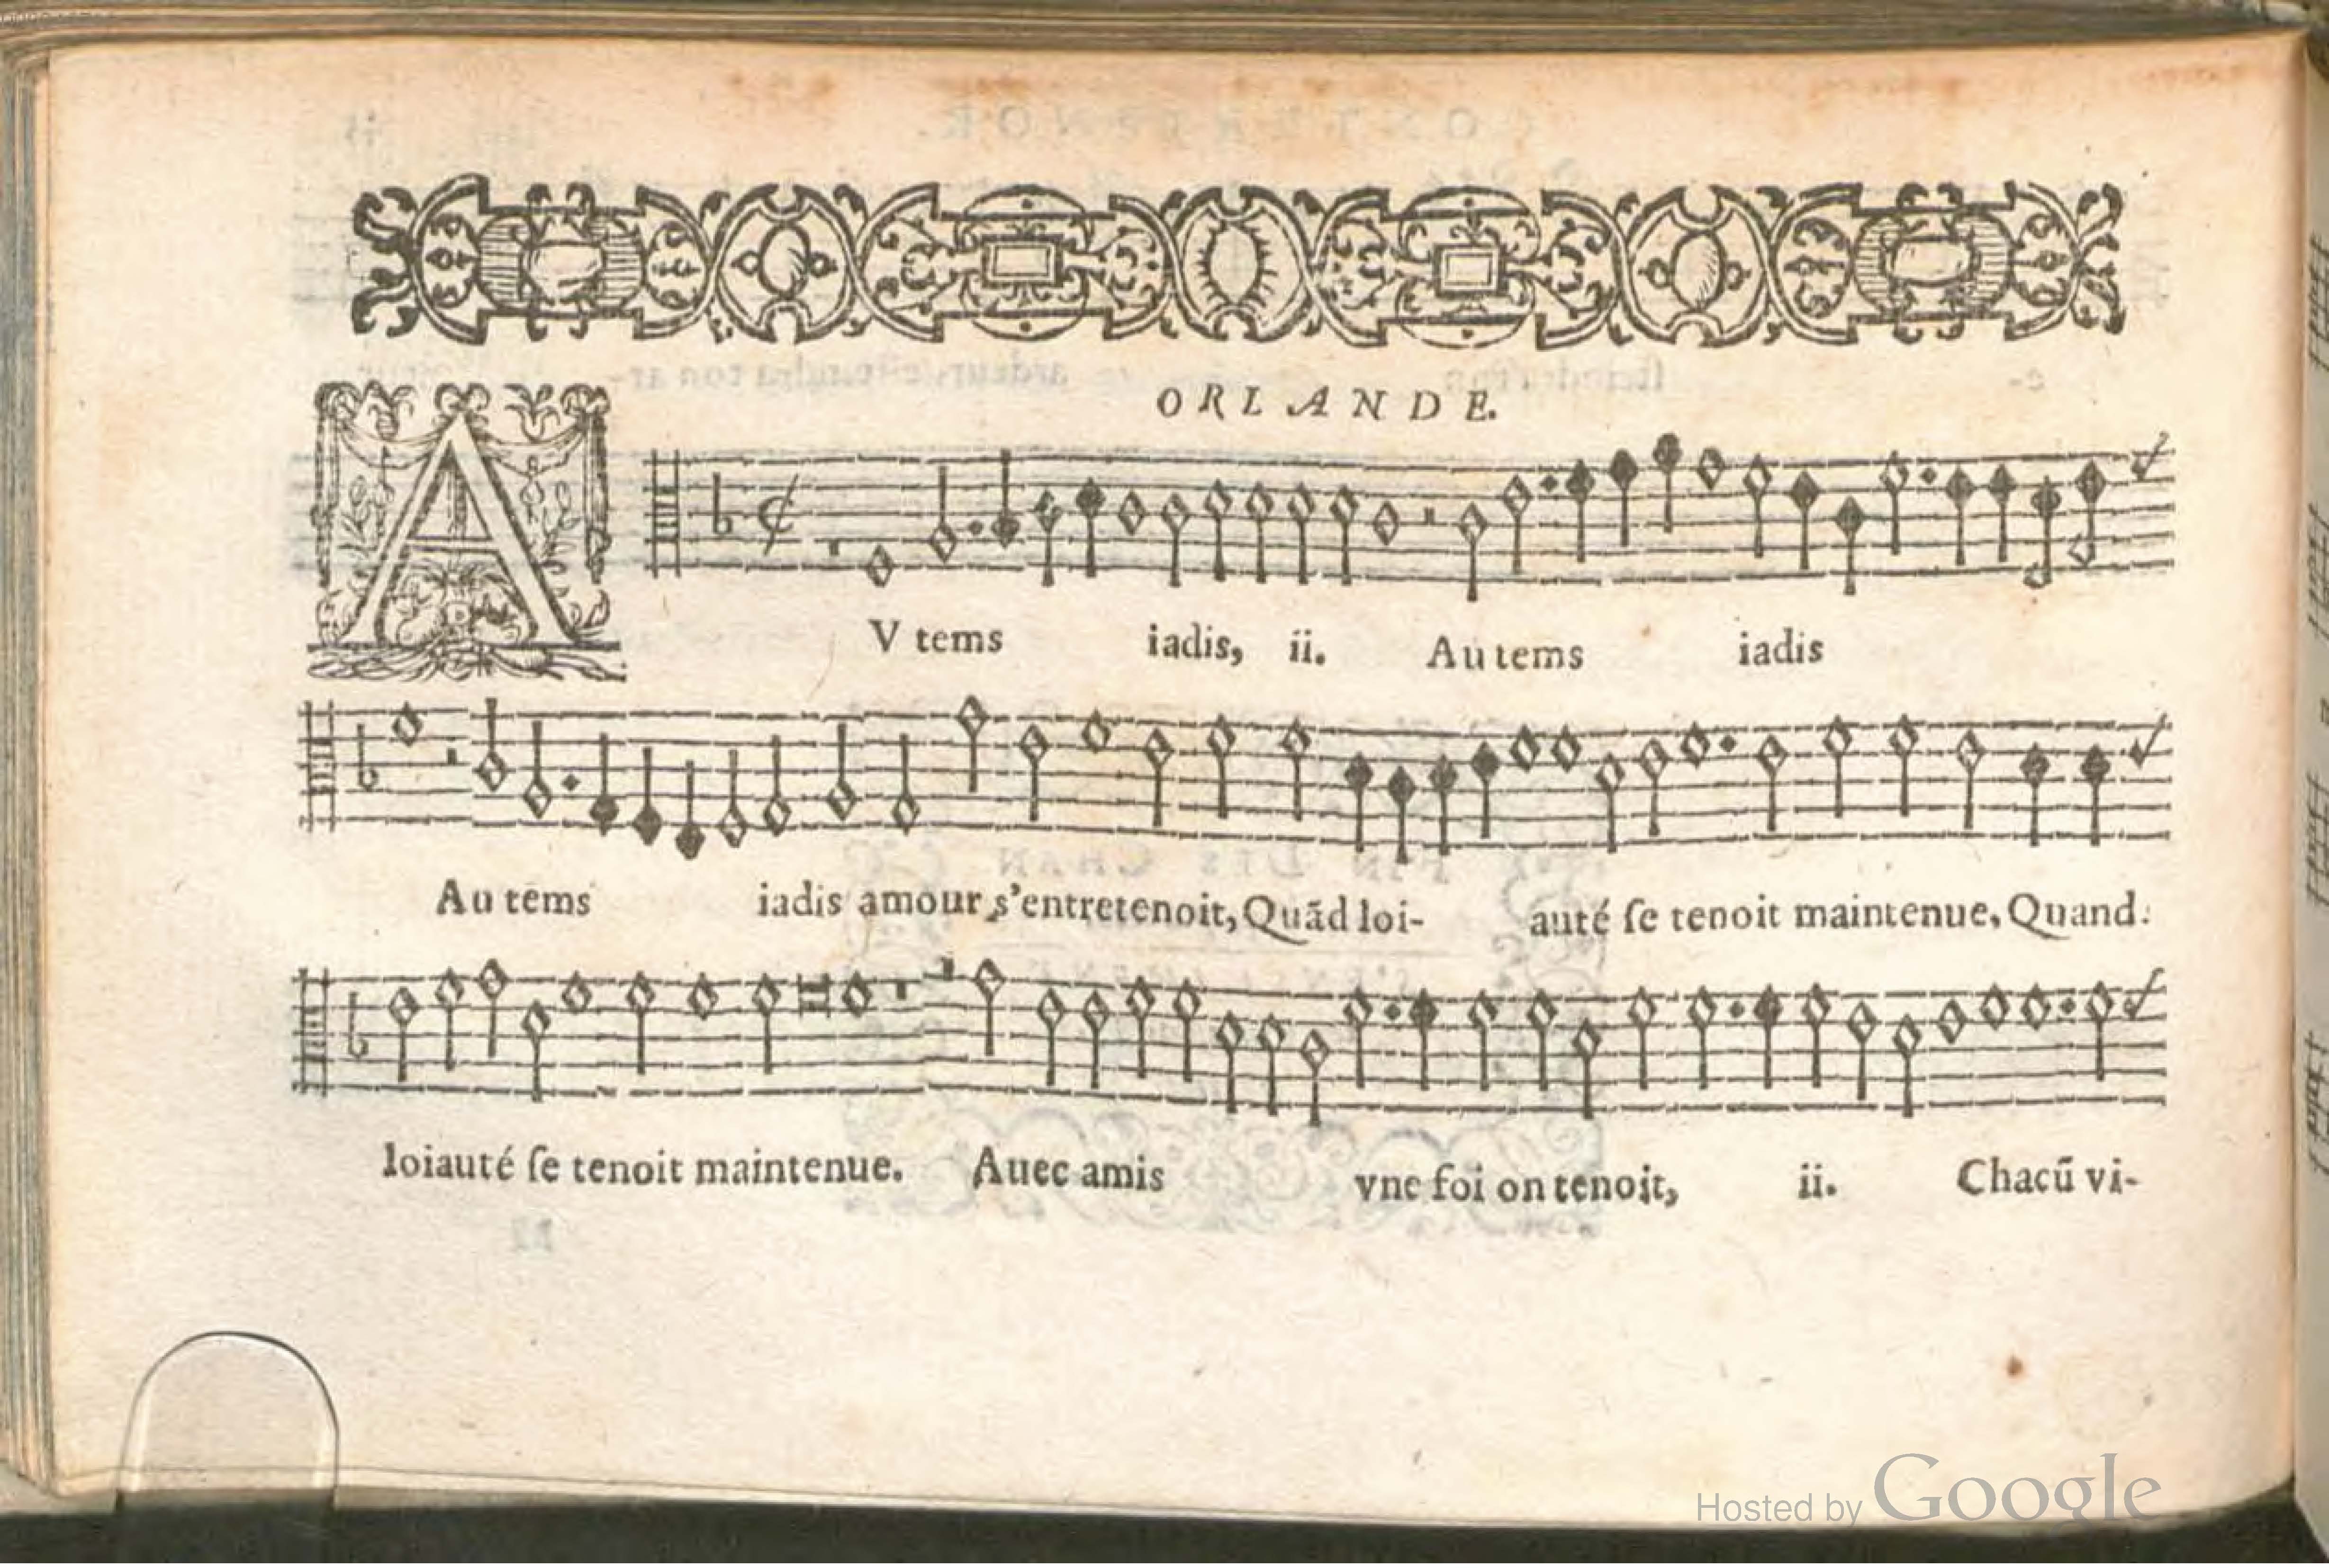 ORLANDE.
AV tems iadis, ii. Au tems iadis
Au tems iadis amour s'entretenoit, Quãd loi- auté ſe tenoit maintenue, Quand
loiauté ſe tenoit maintenue. Auec amis vne foi on tenoit, ii. Chacũ vi-
Hosted by Google